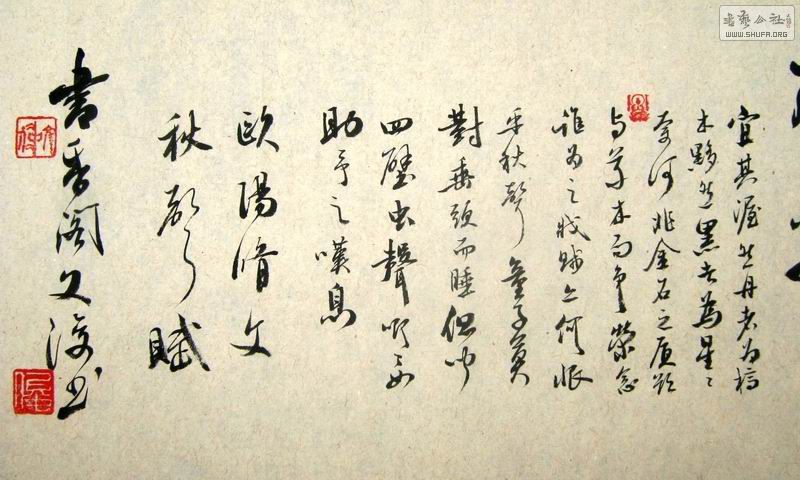 書藝公社
WWW.SHUFA.ORG
宜其渥然丹者为槁
木黟然黑者為星〻
奈何非金石之质欲
与草木而争榮念
谁为之戕贼亦何恨
乎秋聲童子莫
對垂頭而睡但闻
四壁虫聲唧〻如
助予之嘆息
歐陽脩文
秋声賦
書香阁文书